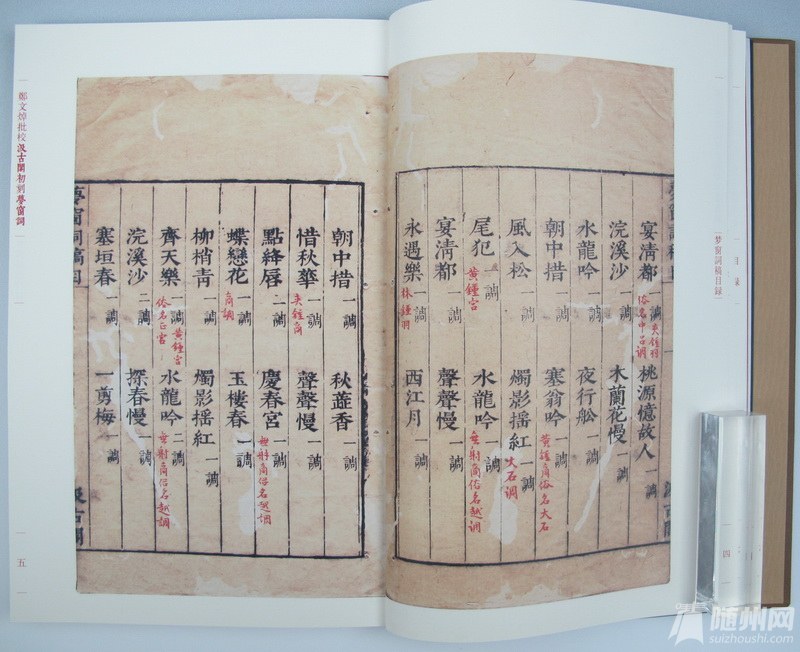 夢窗詞稿目錄
四
宴清都 一調 夾鍾羽俗名中呂調 桃源憶故人 一調
浣溪沙 一調 木蘭花慢 一調
水龍吟 一調 夜行舩 一調
朝中措 一調 塞翁吟 一調 黃鍾商俗名大石
風入松 一調 燭影揺紅 一調 大石調
尾犯 一調 黃鍾宮 水龍吟 一調 無射商俗名越調
宴清都 一調 聲聲慢 一調
永遇樂 一調 林鍾羽 西江月 一調
朝中措 一調 秋蘂香 一調
惜秋華 一調 夾鍾商 聲聲慢 一調
點絳唇 一調 慶春宮 一調 無射商俗名越調
蝶戀花 一調 商調 玉樓春 一調
柳梢青 一調 燭影揺紅 一調
齊天樂 二調 黃鍾宮俗名正宮 水龍吟 二調 無射商俗名越調
浣溪沙 二調 探春慢 一調
塞垣春 一調 一剪梅 一調
夢窗詞稿目 汲古閣
鄭文焯批校汲古閣初刻夢窗詞
五
随州网
suizhoushi.com